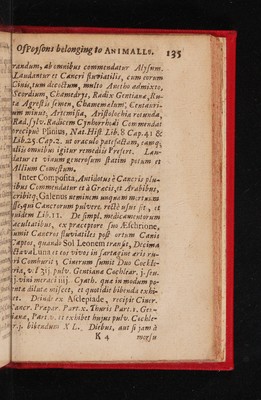 Of Poysons belonging to ANIMALLS. 135
randum, ab omnibus commendatur Alysum.
Laudantur et Cancri fluviatilis, cum eorum
Cinis, tum decoctum, multo Anetho admixto,
Scordium, Chamædrys, Radix Gentianæ, Ru-
ta Agrestis semen, Chamæmalum, Centauri-
um minus, Artemisia, Aristolochia rotunda,
Rad. sylv. Radicem Cynhorrhodi Commendat
præcipuè Plinius, Nat. Hist Lib. 8 Cap. 41 &
Lib. 25 Cap. 2. ut oraculo patefactam, tamq;
aliis omnibus igitur remediis Prefert. Lau-
datur et vinum generosum statim potum et
Allium Comestum.
Inter Composita, Antidotus è Cancris plu-
ribus Commendatur et à Græcis, et Arabibus,
scribitq; Galenus neminem unquam mortuum
esse, qui Cancrorum pulvere rectè usus sit, et
quidem Lib. 11. De simpl. medicamentorum
facultatibus, ex præcepto sui Æschrione,
sumit Cancros fluviatiles post ortum Canis
Captos, quando Sol Leonem transit, Decima
octava Luna et eos vivos in sartagine æris ru-
bri Comburit; Cinerum sumit Duo Cochle-
aria, pulv. Gentianæ Cochlear. j. sem.
vini meraci Cyath. quæ in modum po-
dilute miscet, et quotidie bibenda exhi-
et. Deinde ex Asclepiade, recipit Ciner.
Cancr. Prapar. Part. x. Thuris Part. 1. Gen-
tianæ, Part. v. et exhibet hujus pulv. Cochle-
bibendum XL. Diebus, aut si jam à
K 4 morsu